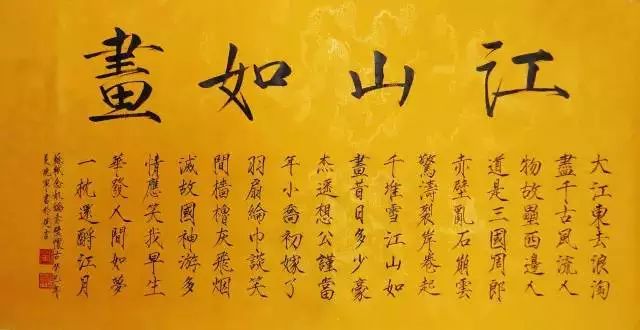 江山如畫
大江東去浪淘
盡千古風流人
物故壘西邊人
道是三國周郎
赤壁亂石崩雲
驚濤裂岸卷起
千堆雪江山如
畫昔日多少豪
杰遙想公謹當
年小喬初嫁了
羽扇綸巾談笑
間檣櫓灰飛烟
滅故國神游多
情應笑我早生
華發人間如夢
一還酹江月
蘇軾念奴嬌赤壁懷古